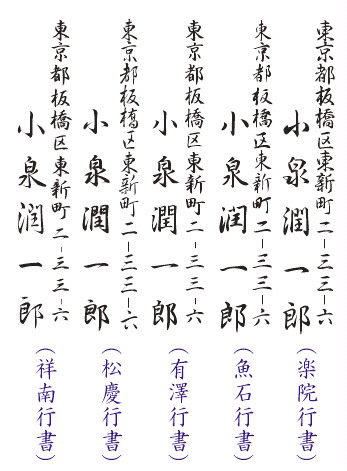 東京都板橋区東新町二−三三−六
小泉潤一郎
（楽院行書）
東京都板橋区東新町二−三三−六
小泉潤一郎
（魚石行書）
東京都板橋区東新町二−三三−六
小泉潤一郎
（有澤行書）
東京都板橋区東新町二−三三−六
小泉潤一郎
（松慶行書）
東京都板橋区東新町二−三三−六
小泉潤一郎
（祥南行書）